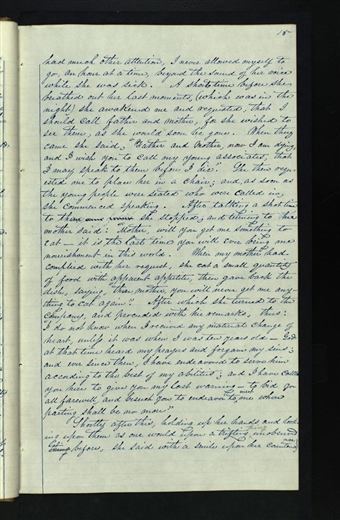 15
had much other attention, I never allowed myself to
go, an hour at a time, beyond the sound of her voice
while she was sick. A short time before she
breathed out her last moments, (which was in the
night) she awakened me and requested, that I
should call father and mother, for she wished to
see them, as she would soon be gone. When they
came she said, "Father and Mother, now I am dying,
and I wish you to call my young associates, that
I may speak to them before I die. She then requ-
ested me to place her in a chair; and as soon as
the young people were seated who were called in,
she commenced speaking. After talking a short time
to them she stopped, and turning to her
mother said: Mother, will you get me something to
eat — it is the last time you will ever bring me
nourishment in this world. When my mother had
complied with her request, she eat a small quantity
of food with apparent appetite, then gave back the
dish, saying, there mother, you will never get me any-
thing to eat again. After which she turned to the
company, and proceeded with her remarks, thus:
I do not know when I received any material change of
heart, unless it was when I was ten years old — God
at that time heard my prayers and forgave my sins;
and ever since then, I have endeavored to serve him
according to the best of my abilities; and I have called
you here to give you my last warning — to bid you
all farewell and beseech you to endeavor to meet me where
parting shall be no more"
Shortly after this, holding up her hands and look-
ing upon them as one would upon a trifling unobserved
thing before, she said with a smile upon her countena